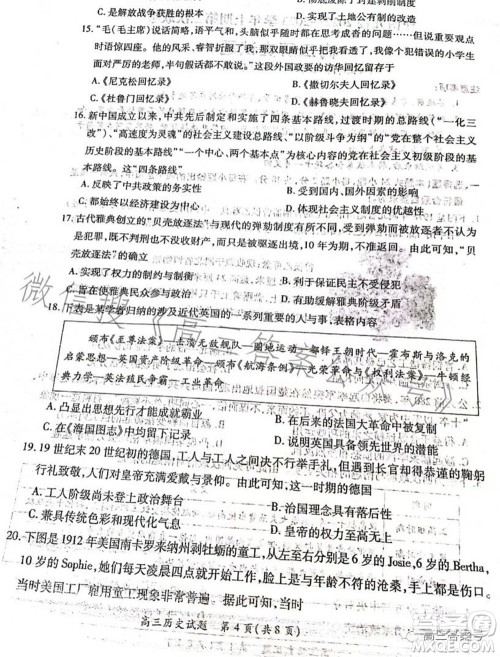 C. 是解放战争获胜的根本
D. 实现了土地公有制的改革
15. “毛(毛主席)说话简略，语声平气和，头脑似乎随时都在思考成沓的问题……但说观点
时语惊四座。他的风采、睿智折服了我，那眼睛似乎把我看个透亮，我像个犯错误的小学生
面对严厉的老师，却更多了敬服。”这段外国政要的访华回忆留存于
A.《尼克松回忆录》
B.《撒切尔夫人回忆录》
C.《杜鲁门回忆录》
D.《赫鲁晓夫回忆录》
16. 新中国成立以来，中共先后制定和实施了四条基本路线，过渡时期的总路线(“一化三
改”)、“高速度为灵魂”的社会主义建设总路线、“以阶级斗争为纲”的“党在整个社会主义
历史阶段的基本路线”“一个中心、两个基本点”为核心的党在社会主义初级阶段的基
本路线。这“四条路线”
A. 反映了中共政策的务实性
B. 受到国内、国外因素的影响
C. 都始终以经济建设为中心
D. 体现社会主义制度的优越性
17. 古代雅典创立的“贝壳放逐法”与现代的弹劾制度有所不同，受到弹劾而被放逐者不认为
是犯罪，既不判刑也不没收财产，而只是被驱逐出境，10 年为期，不准回国。可以推知，“贝
壳放逐法”的确立
A. 实现了权力的制约与制衡
B. 利于保证民主不受侵犯
C. 旨在使雅典民众参与政治
D. 有助缓解雅典阶级矛盾
18. 下表是某学者归纳的涉及近代英国的一系列重要的人与事，表格内容
颁布《至尊法案》—击溃无敌舰队—圈地运动—都铎王朝时代—霍布斯与洛克的
启蒙思想—英国资产阶级革命—颁布《航海条例》—光荣革命与《权利法案》—牛顿经
典力学—英法殖民争霸—工业革命
A. 凸显出历史进步的革命效应
B. 在后来的法国大革命中被复制
C. 在《海国图志》中均留下记录
D. 说明英国具备领先世界的潜能
19. 19 世纪末 20 世纪初的德国，工人与工人之间决不行礼，但长官出现时却得恭谨的鞠躬
行礼致敬，人们对皇帝充满爱戴与景仰。由此可知，这一时期的德国
A. 工人阶级尚未登上政治舞台
B. 治国理念具有落后性
C. 兼具传统色彩和现代化气息
D. 皇帝的权力至高无上
20. 下图是 1912 年美国南卡罗来纳州剥牡蛎的童工，从左至右分别是 6 岁的 Josie，6 岁的 Bertha，
10 岁的 Sophie，她们每天凌晨四点就开始工作，脸上是与年龄不符的沧桑，手上都是伤口。
当时美国工厂雇用童工现象非常普遍。据此可知，当时
高三历史试题 第 4 页(共 8 页)
微信搜《高三答案公众号》
高三答案号